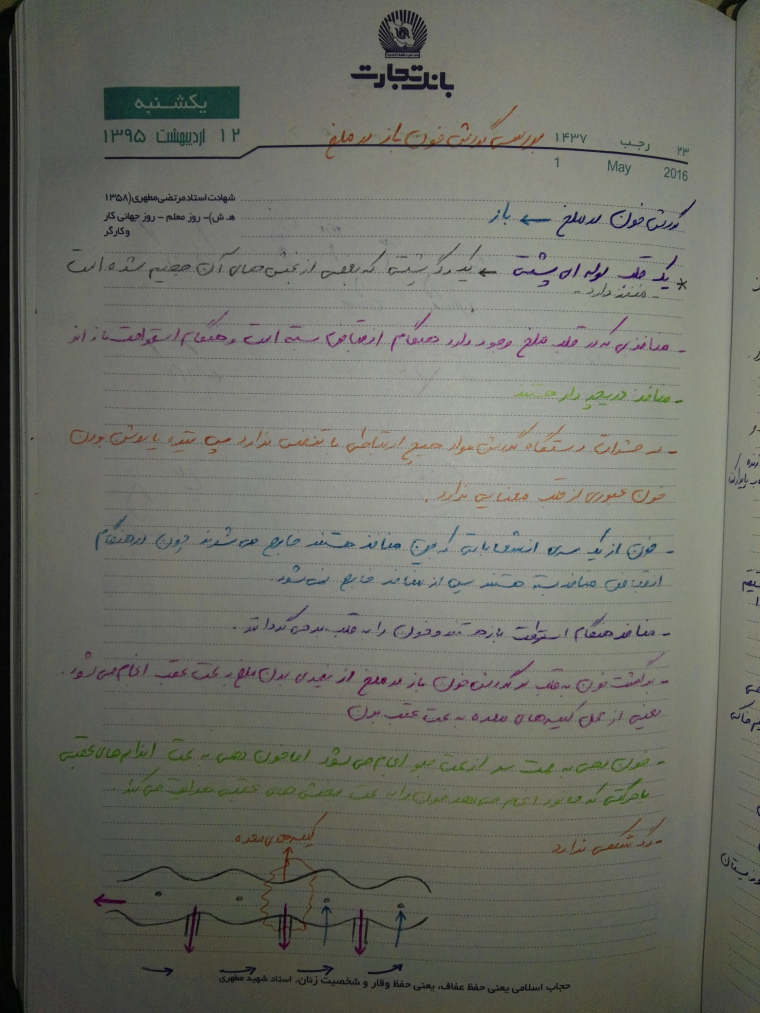 بانک تجارت
یکشنبه
۱۲ اردیبهشت ۱۳۹۵
۲۳ رجب ۱۴۳۷
1 May 2016
بررسی گردش خون باز در ملخ
شهادت استاد مرتضی مطهری (۱۳۵۸
ه‍.ش)- روز معلم - روز جهانی کار
و کارگر
گردش خون در ملخ ← باز
* یک قلب لوله ای پشتی ← یک رگ پشتی که بعضی از بخش های آن حجیم شده است
- منفذ دارد -
- منافذی که در قلب ملخ وجود دارد هنگام انقباض بسته است و هنگام استراحت باز اند
- منافذ دریچه دار هستند
- در حشرات دستگاه گردش مواد هیچ ارتباطی با تنفس ندارد پس تیره یا روشن بودن
خون عبوری از قلب معنایی ندارد.
- خون از یک سری انشعاباتی که بین منافذ هستند خارج می شوند چون در هنگام
انقباض منافذ بسته هستند پس از منافذ خارج نمی شود.
- منافذ هنگام استراحت باز هستند و خون را به قلب بر می گردانند.
- برگشت خون به قلب در گردش خون باز در ملخ از بخش بدن ملخ به سمت عقب انجام می شود.
یعنی از محل کیسه های معده به سمت عقب بدن
- خون دهی به سمت سر از سمت جلو انجام می شود اما خون دهی به سمت اندام های عقبی
با حرکتی که جانور انجام می دهد خون را به سمت بخش های عقبی هدایت می کند.
- رگ شکمی ندارد
کیسه های معده
حجاب اسلامی یعنی حفظ عفاف، یعنی حفظ وقار و شخصیت زنان. استاد شهید مطهری